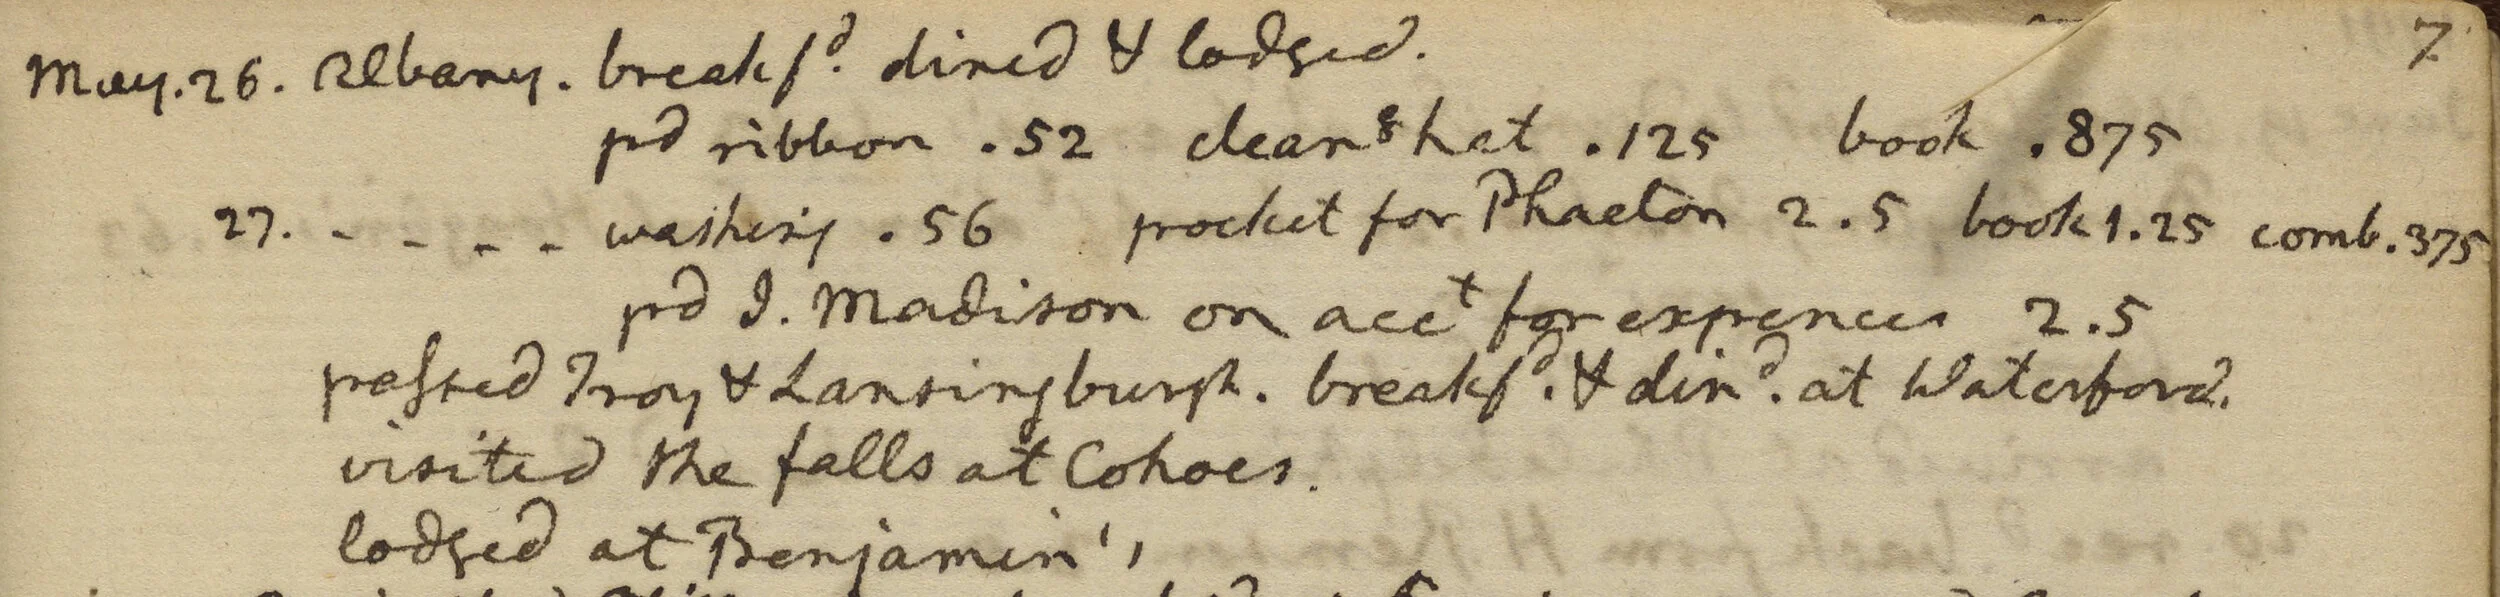 7
May. 26. Albany. breakfd. dined & lodged.
pd ribbon .52 cleang hat .125 book .875
27. - - - - washing .56 pocket for Phaeton 2.5 book 1.25 comb .375
pd J. Madison on acct for expences 2.5
passed Troy & Lansingburgh. breakfd. & dind. at Waterford.
visited the falls at Cohoes.
lodged at Benjamin's